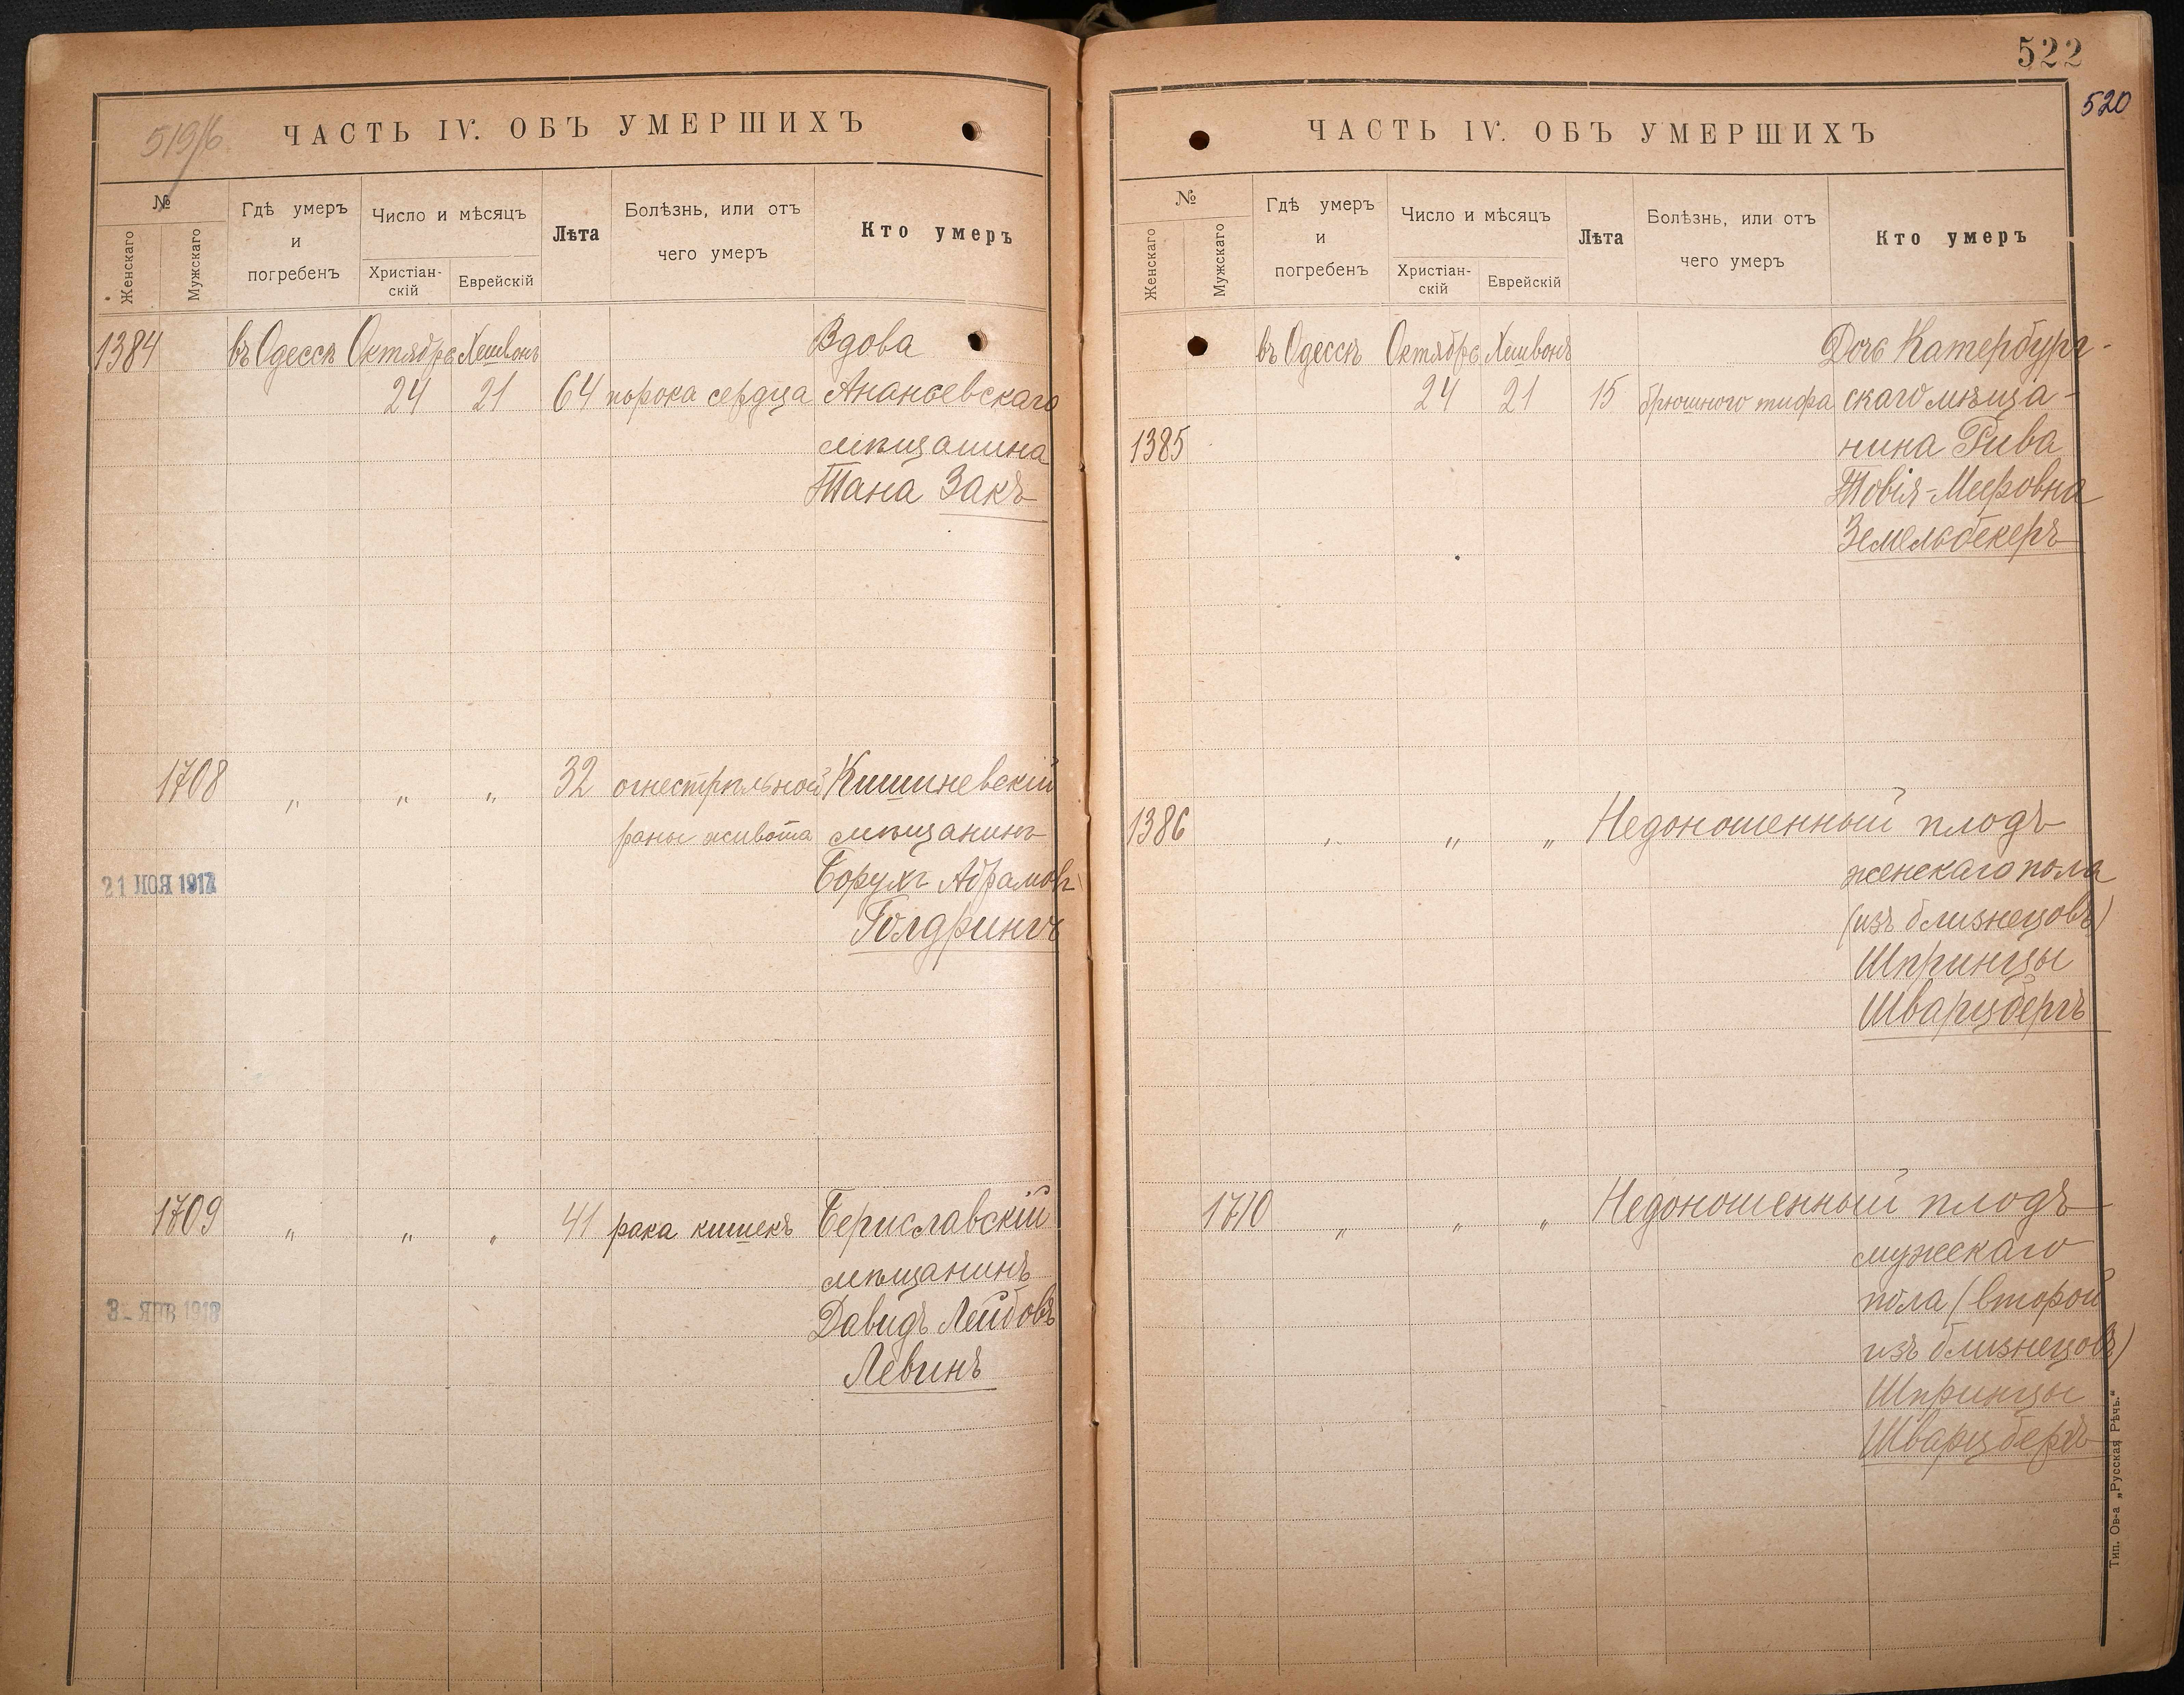 519/6
ЧАСТЬ IV. ОБЪ УМЕРШИХЪ
№
Женскаго
Мужскаго
Гдѣ умеръ
и
погребенъ
Число и мѣсяцъ
Христіан-
скій
Еврейскій
Лѣта
Болѣзнь, или отъ
чего умеръ
Кто умеръ
1384 въ Одессѣ Октября Хешвонъ Вдова
24 21 64 порока сердца Ананьевскаго
мѣщанина
Тана Закъ
1708 " " " 32 огнестрѣльной Кишиневскій
раны живота мѣщанинъ
21 НОЯ 1917
Борухъ Абрамовъ
Голдрингъ
1709 " " " 41 рака кишекъ Бериславскій
мѣщанинъ
3- ЯНВ 1918
Давидъ Лейбовъ
Левинъ
522
520
ЧАСТЬ IV. ОБЪ УМЕРШИХЪ
№
Женскаго
Мужскаго
Гдѣ умеръ
и
погребенъ
Число и мѣсяцъ
Христіан-
скій
Еврейскій
Лѣта
Болѣзнь, или отъ
чего умеръ
Кто умеръ
въ Одессѣ Октября Хешвонъ Дочь Катербург-
24 21 15 брюшного тифа скаго мѣща-
1385 нина Рива
Товія-Мееровна
Земельбекеръ
1386 " " " Недоношенный плодъ
женскаго пола
(изъ близнецовъ)
Шпринцы
Шварцбергъ
1710 " " " Недоношенный плодъ
мужескаго
пола (второй
изъ близнецовъ)
Шпринцы
Шварцбергъ
Тип. Ов-а „Русская Рѣчь."